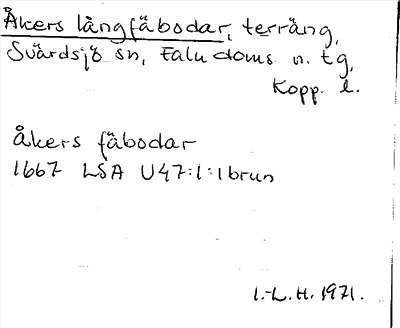 Åkers långfäbodar, terräng,
Svärdsjö sn, Falu doms n. tg,
Kopp. l.
åkers fäbodar
1667 LSA U47:1:1brun
I.-L.H. 1971.